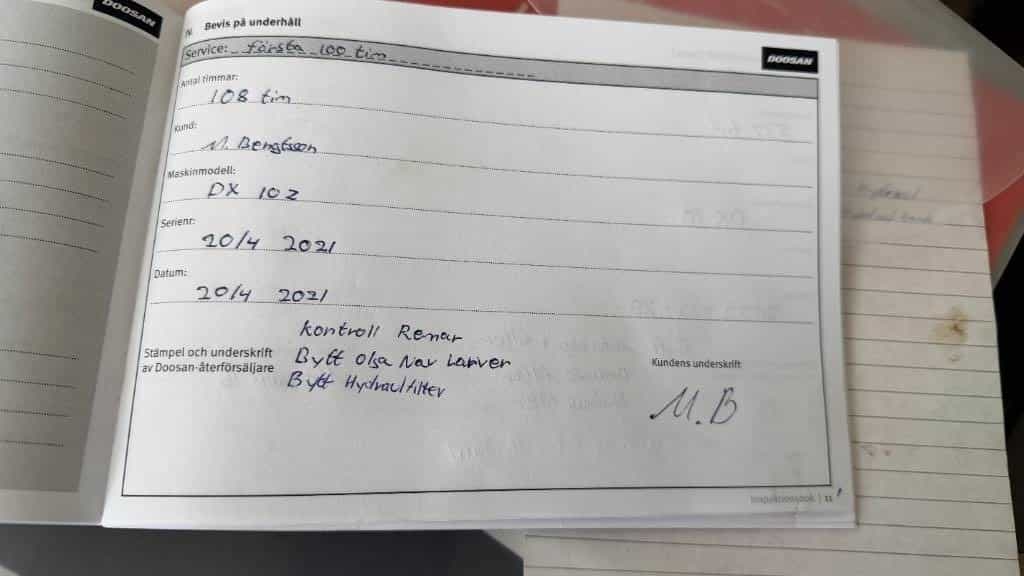 DOOSAN
IV. Bevis på underhåll
DOOSAN
Service: första 100 tim
Antal timmar:
108 tim
Kund:
M. Bengtsson
Maskinmodell:
DX 10Z
Serienr:
20/4 2021
Datum:
20/4 2021
Kontroll Remar
Bytt Olja Nav Lariver
Bytt Hydraulfilter
Stämpel och underskrift
av Doosan-återförsäljare
Kundens underskrift
M.B
Inspektionsbok | 11
Hydraul